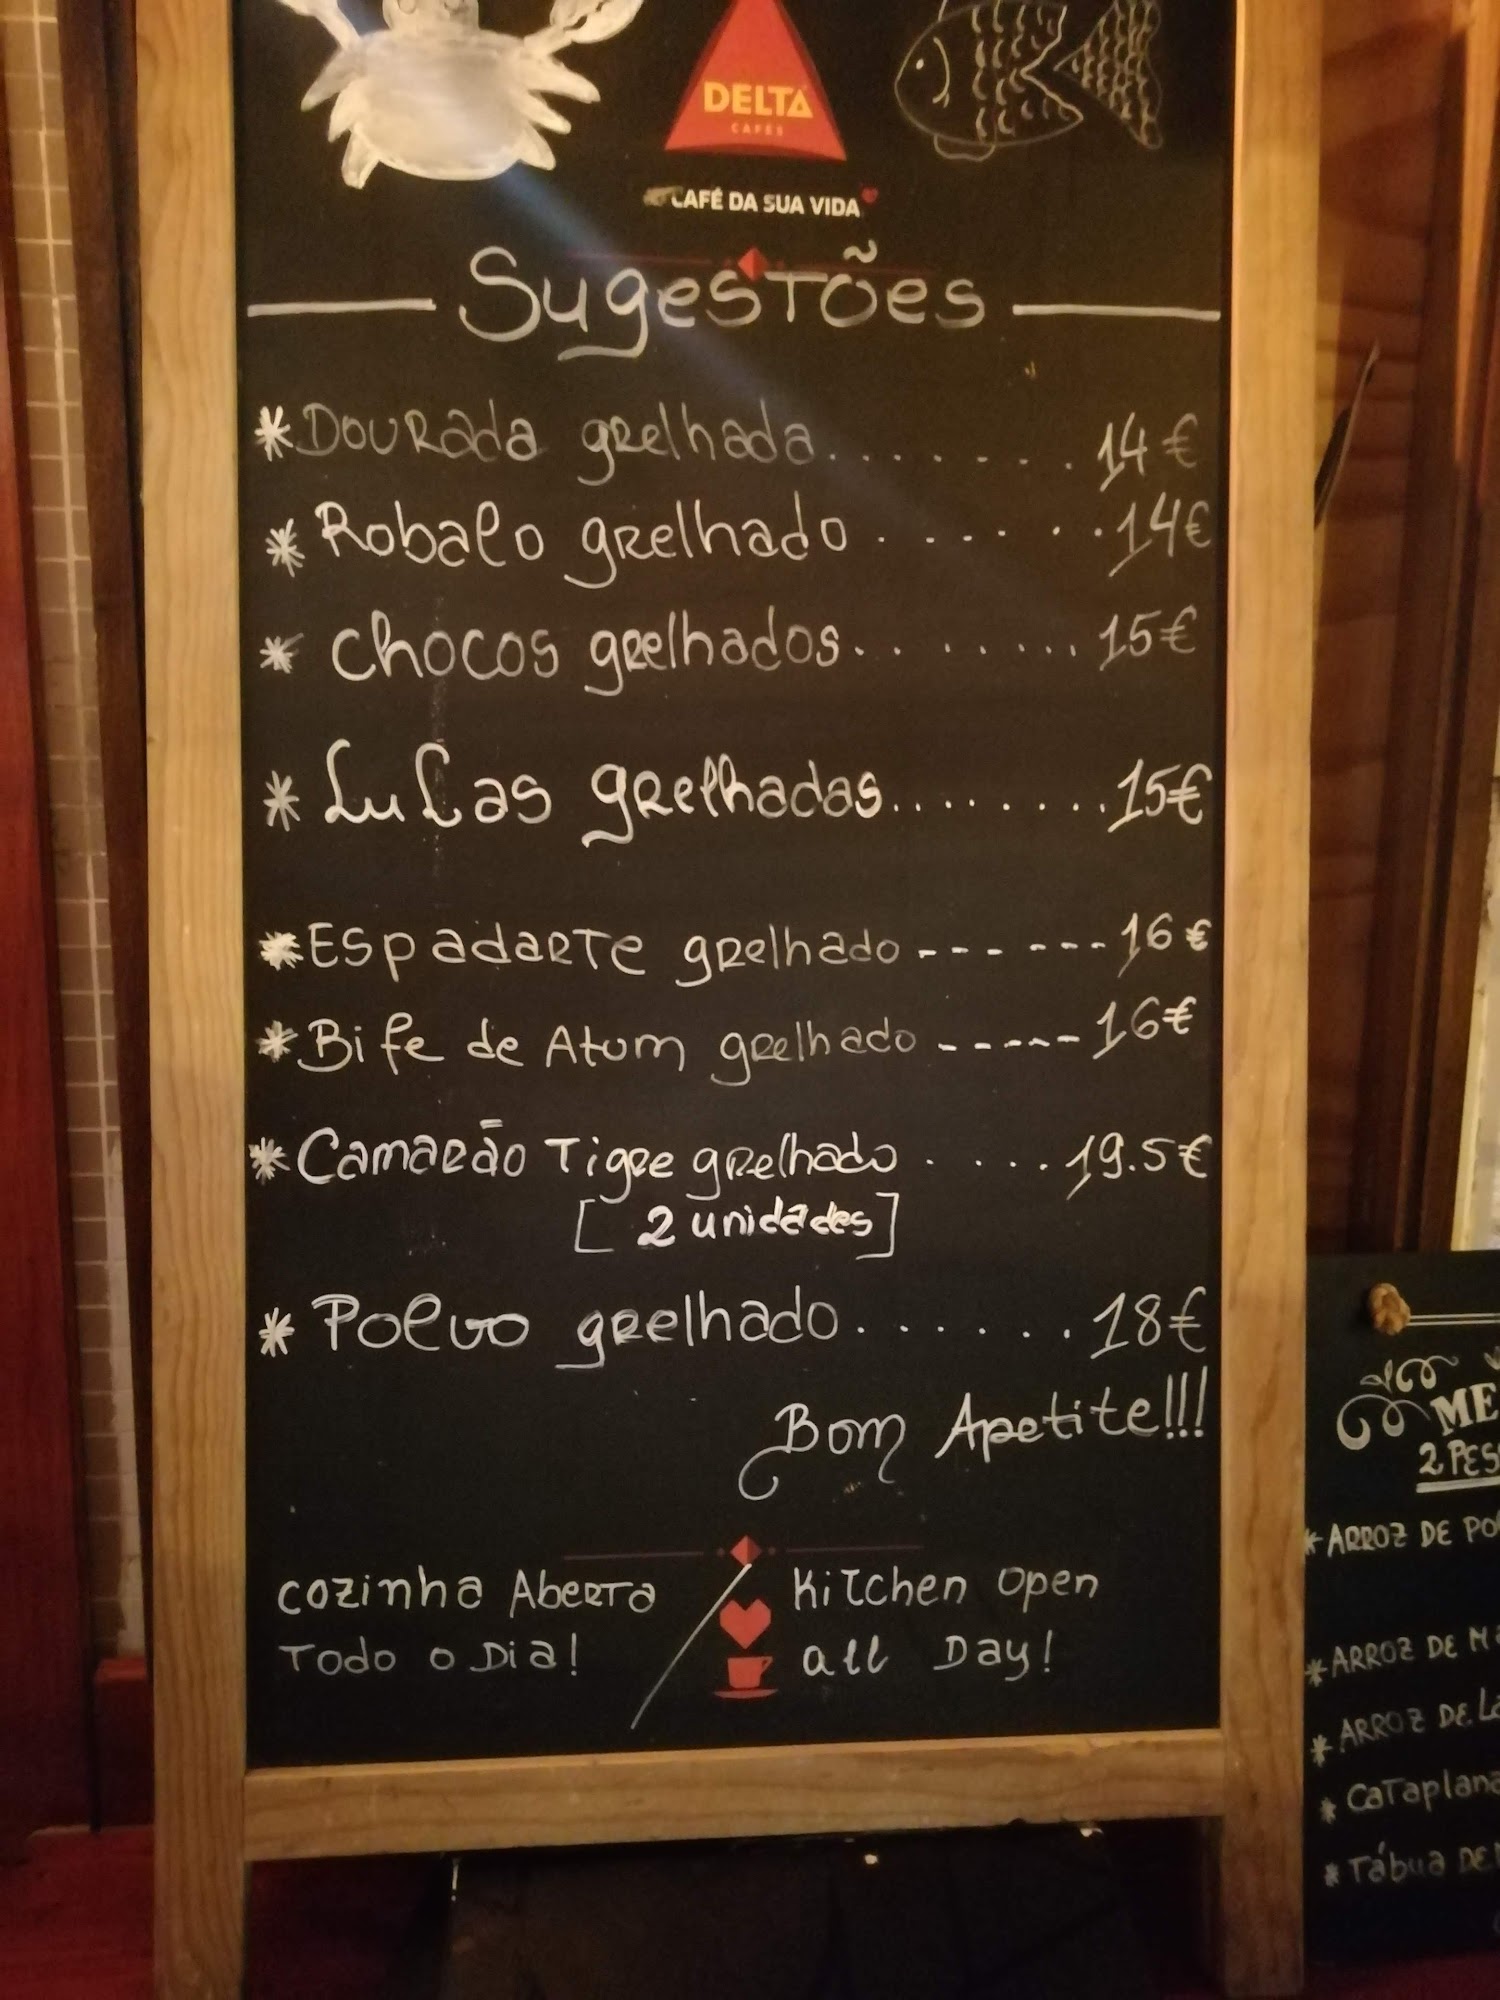 DELTA
CAFÉS
CAFÉ DA SUA VIDA
Sugestões
* Dourada grelhada........ 14€
* Robalo grelhado ....... 14€
* Chocos grelhados........ 15€
* Lulas grelhadas......... 15€
* Espadarte grelhado ------ 16€
* Bife de Atum grelhado ----- 16€
* Camarão Tigre grelhado ..... 19.5€
[ 2 unidades]
* Polvo grelhado....... 18€
Bom Apetite!!!
Cozinha Aberta
Todo o Dia!
Kitchen Open
all Day!
2 PES
* ARROZ DE
* ARROZ DE
* ARROZ DE
* Cataplana
* Tábua DE